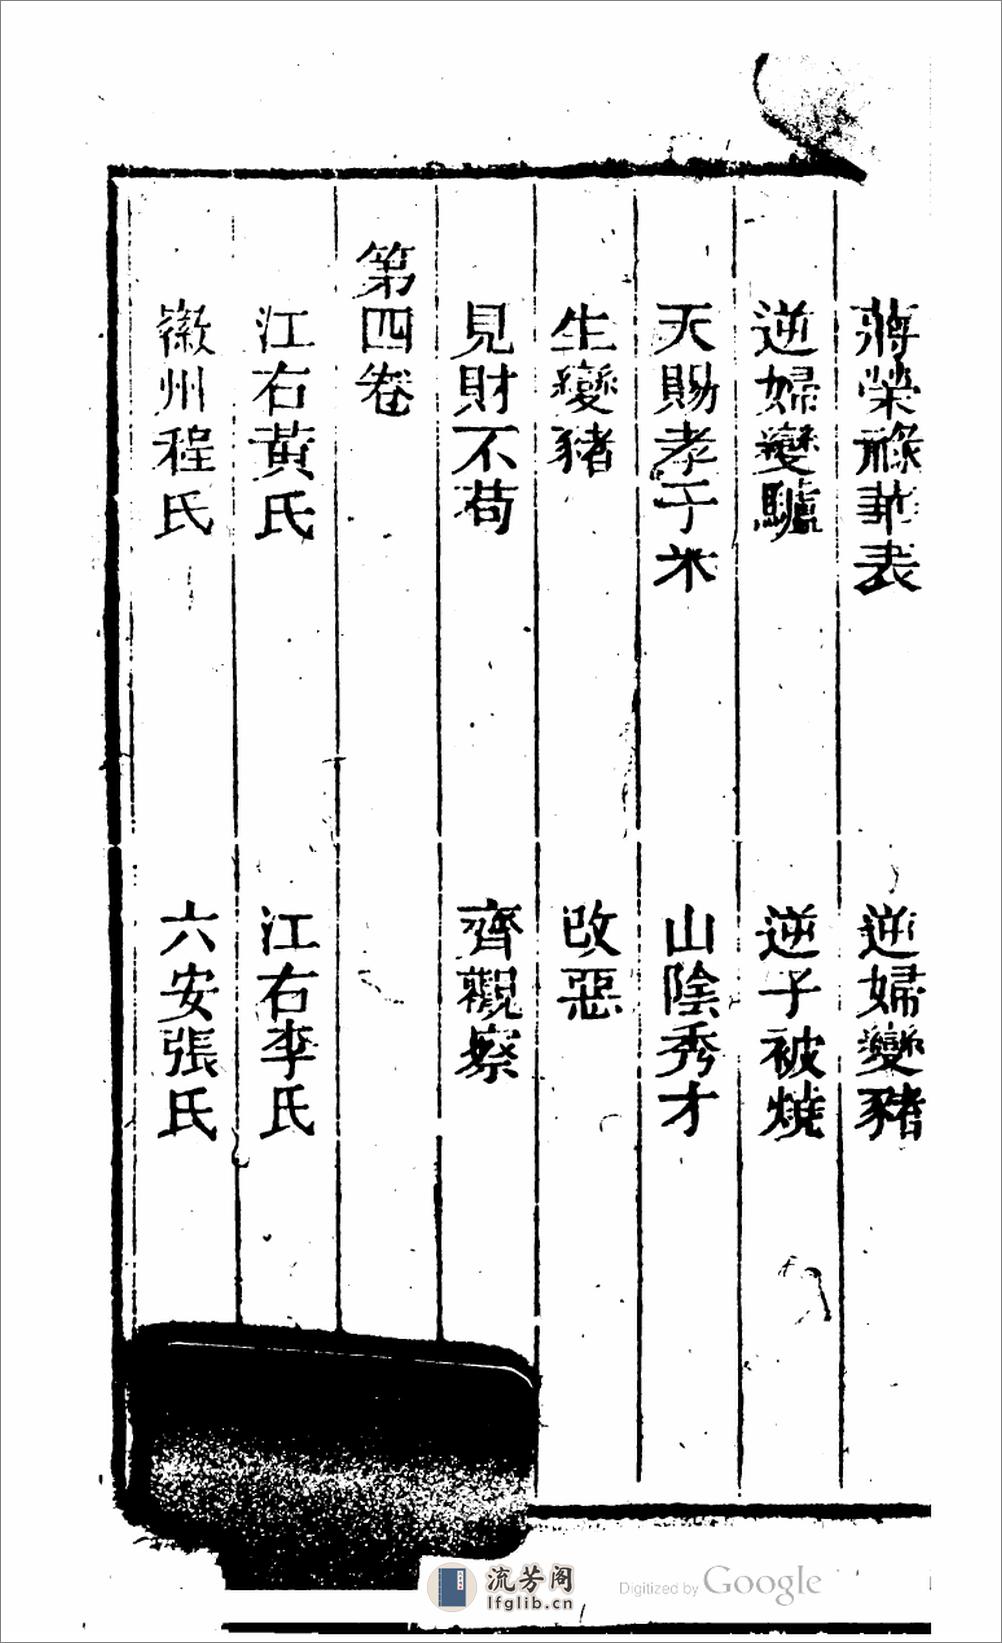 蔣榮祿葬表　逆婦變豬
逆婦變驢　逆子被燒
天賜孝子米　山陰秀才
生變豬　改惡
見財不苟　齊觀察
第四卷
江右黃氏　江右李氏
徽州程氏　六安張氏
流芳阁
lfglib.cn
Digitized by Google